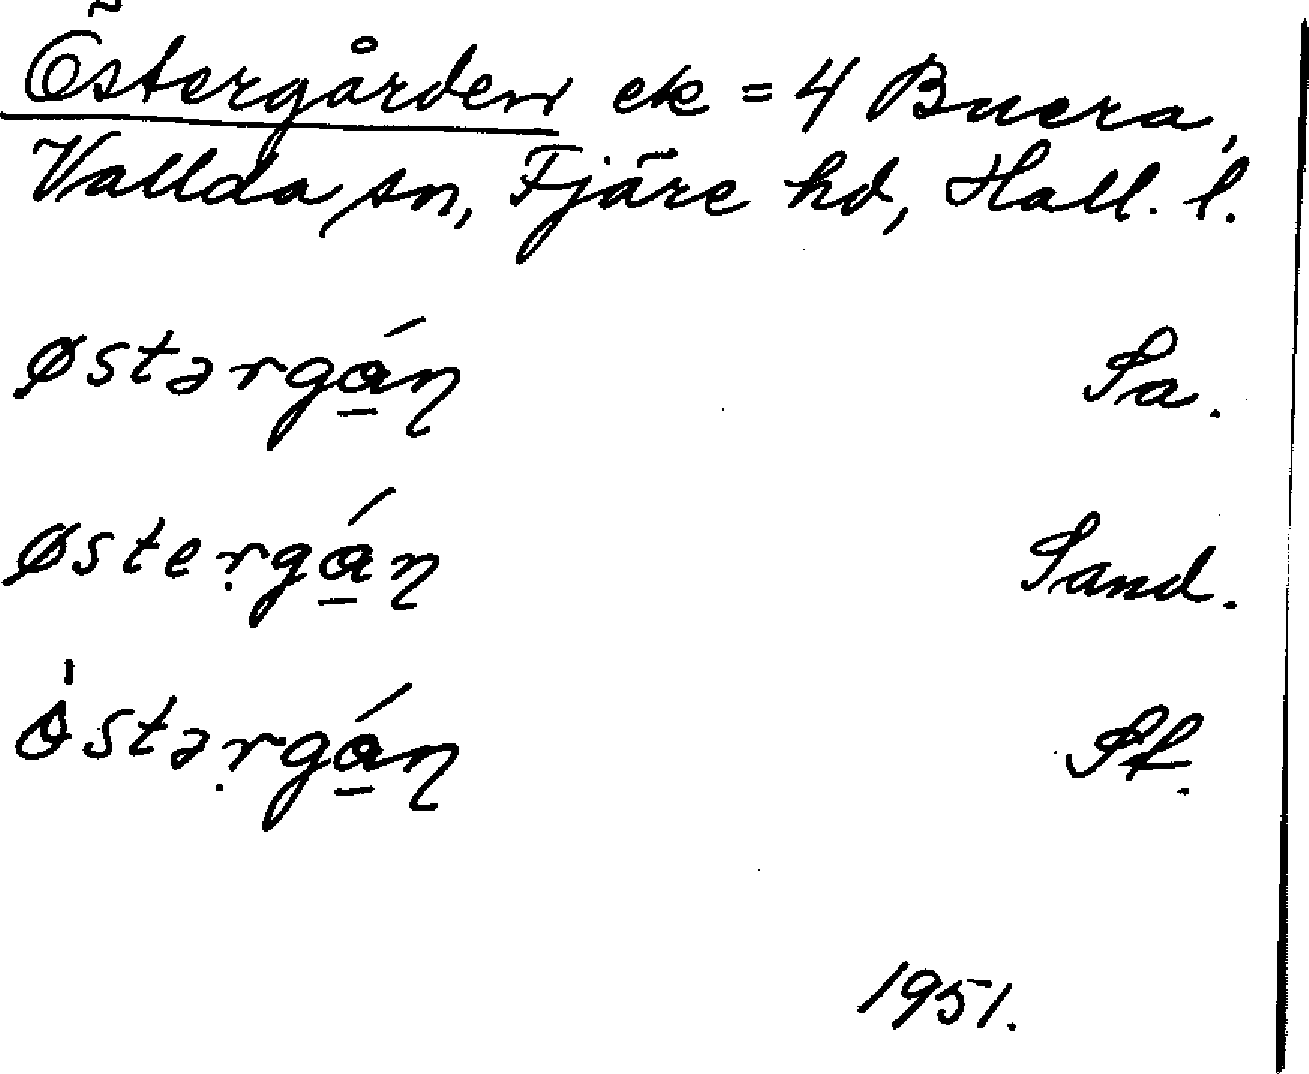 Östergården ek = 4 Buera,
Vallda sn, Fjäre hd, Hall. l.
østərgá̱ꞃ Sa.
østeṛgá̱ꞃ Sand.
östəṛgá̱ꞃ Sf.
1951.